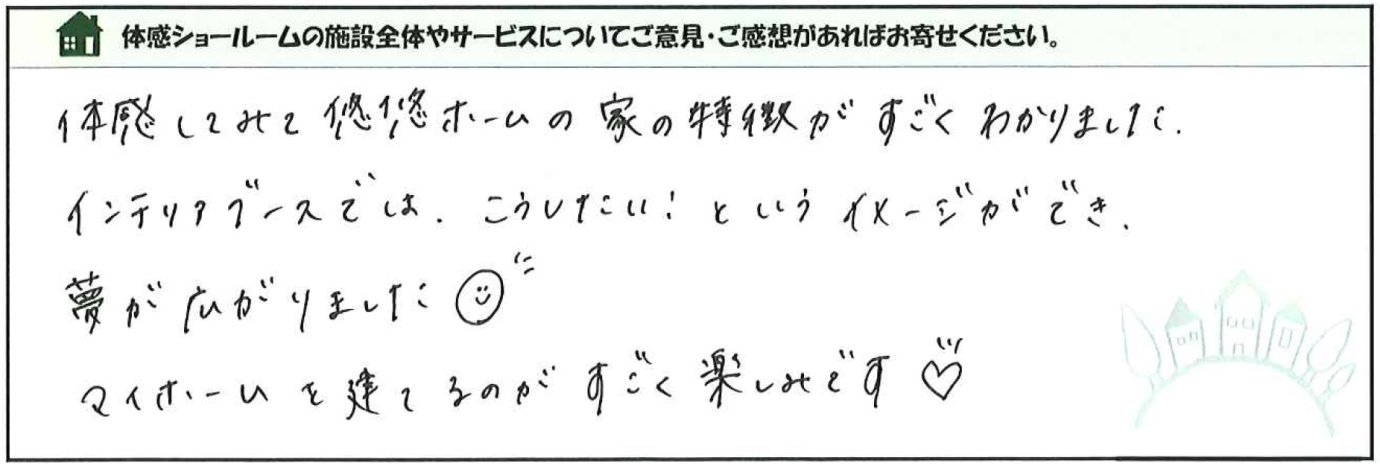 体感ショールームの施設全体やサービスについてご意見・ご感想があればお寄せください。
体感してみて悠悠ホームの家の特徴がすごくわかりました.
インテリアブースでは、こうしたい！というイメージができ、
夢が広がりました
マイホームを建てるのがすごく楽しみです♡